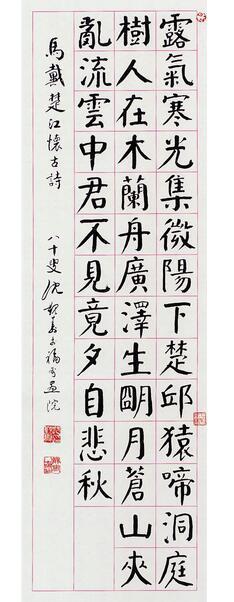 露氣寒光集微陽下楚邱猿啼洞庭
樹人在木蘭舟廣澤生朙月蒼山夾
亂流雲中君不見竟夕自悲秋
馬戴楚江懷古詩 八十叟沈